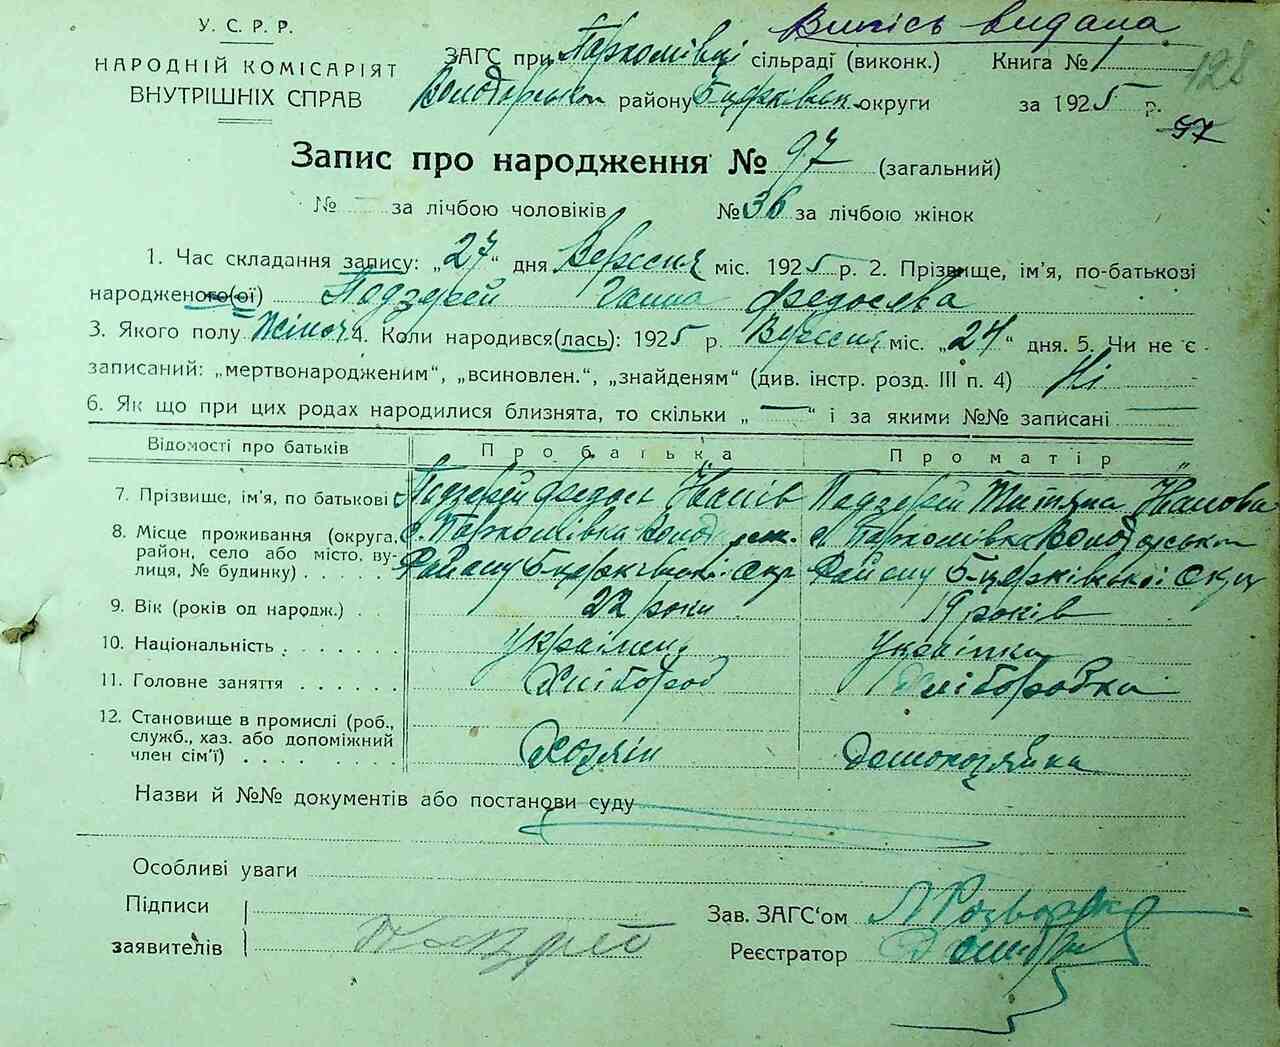 У. С. Р. Р.
НАРОДНІЙ КОМІСАРІЯТ
ВНУТРІШНІХ СПРАВ
Випісь видана
ЗАГС при Пархомівці сільраді (виконк.) Книга № 1
128
району Б-церківськ. округи за 1925 р.
97
Запис про народження № 97 (загальний)
№ — за лічбою чоловіків № 36 за лічбою жінок
1. Час складання запису: „27“ дня Вересня міс. 1925 р. 2. Прізвище, ім'я, по-батькові
народженого(ої) Подзерей Ганна Федосева
3. Якого полу Жіноч. 4. Коли народився(лась): 1925 р. Вересня міс. „24“ дня. 5. Чи не є
записаний: „мертвонародженим“, „всиновлен.“, „знайденям“ (див. інстр. розд. III п. 4) Ні
6. Як що при цих родах народилися близнята, то скільки „ — “ і за якими №№ записані —
Відомості про батьків Про батька Про матір
7. Прізвище, ім'я, по батькові Подзерей Федос Іванів Подзерей Титяна Іванова
8. Місце проживання (округа, с. Пархомівка с. Пархомівка Володарськ
район, село або місто, ву-
лиця, № будинку) Району Б-церківської Окр Району Б-церківської Окр
9. Вік (років од народж.) 22 роки 19 років
10. Національність Українець Українка
11. Головне заняття Хлібороб Хліборобка
12. Становище в промислі (роб.,
служб., хаз. або допоміжний
член сім'ї) Хозяїн Домохозяйка
Назви й №№ документів або постанови суду
Особливі уваги
Підписи
заявителів
Зав. ЗАГС'ом
Реєстратор